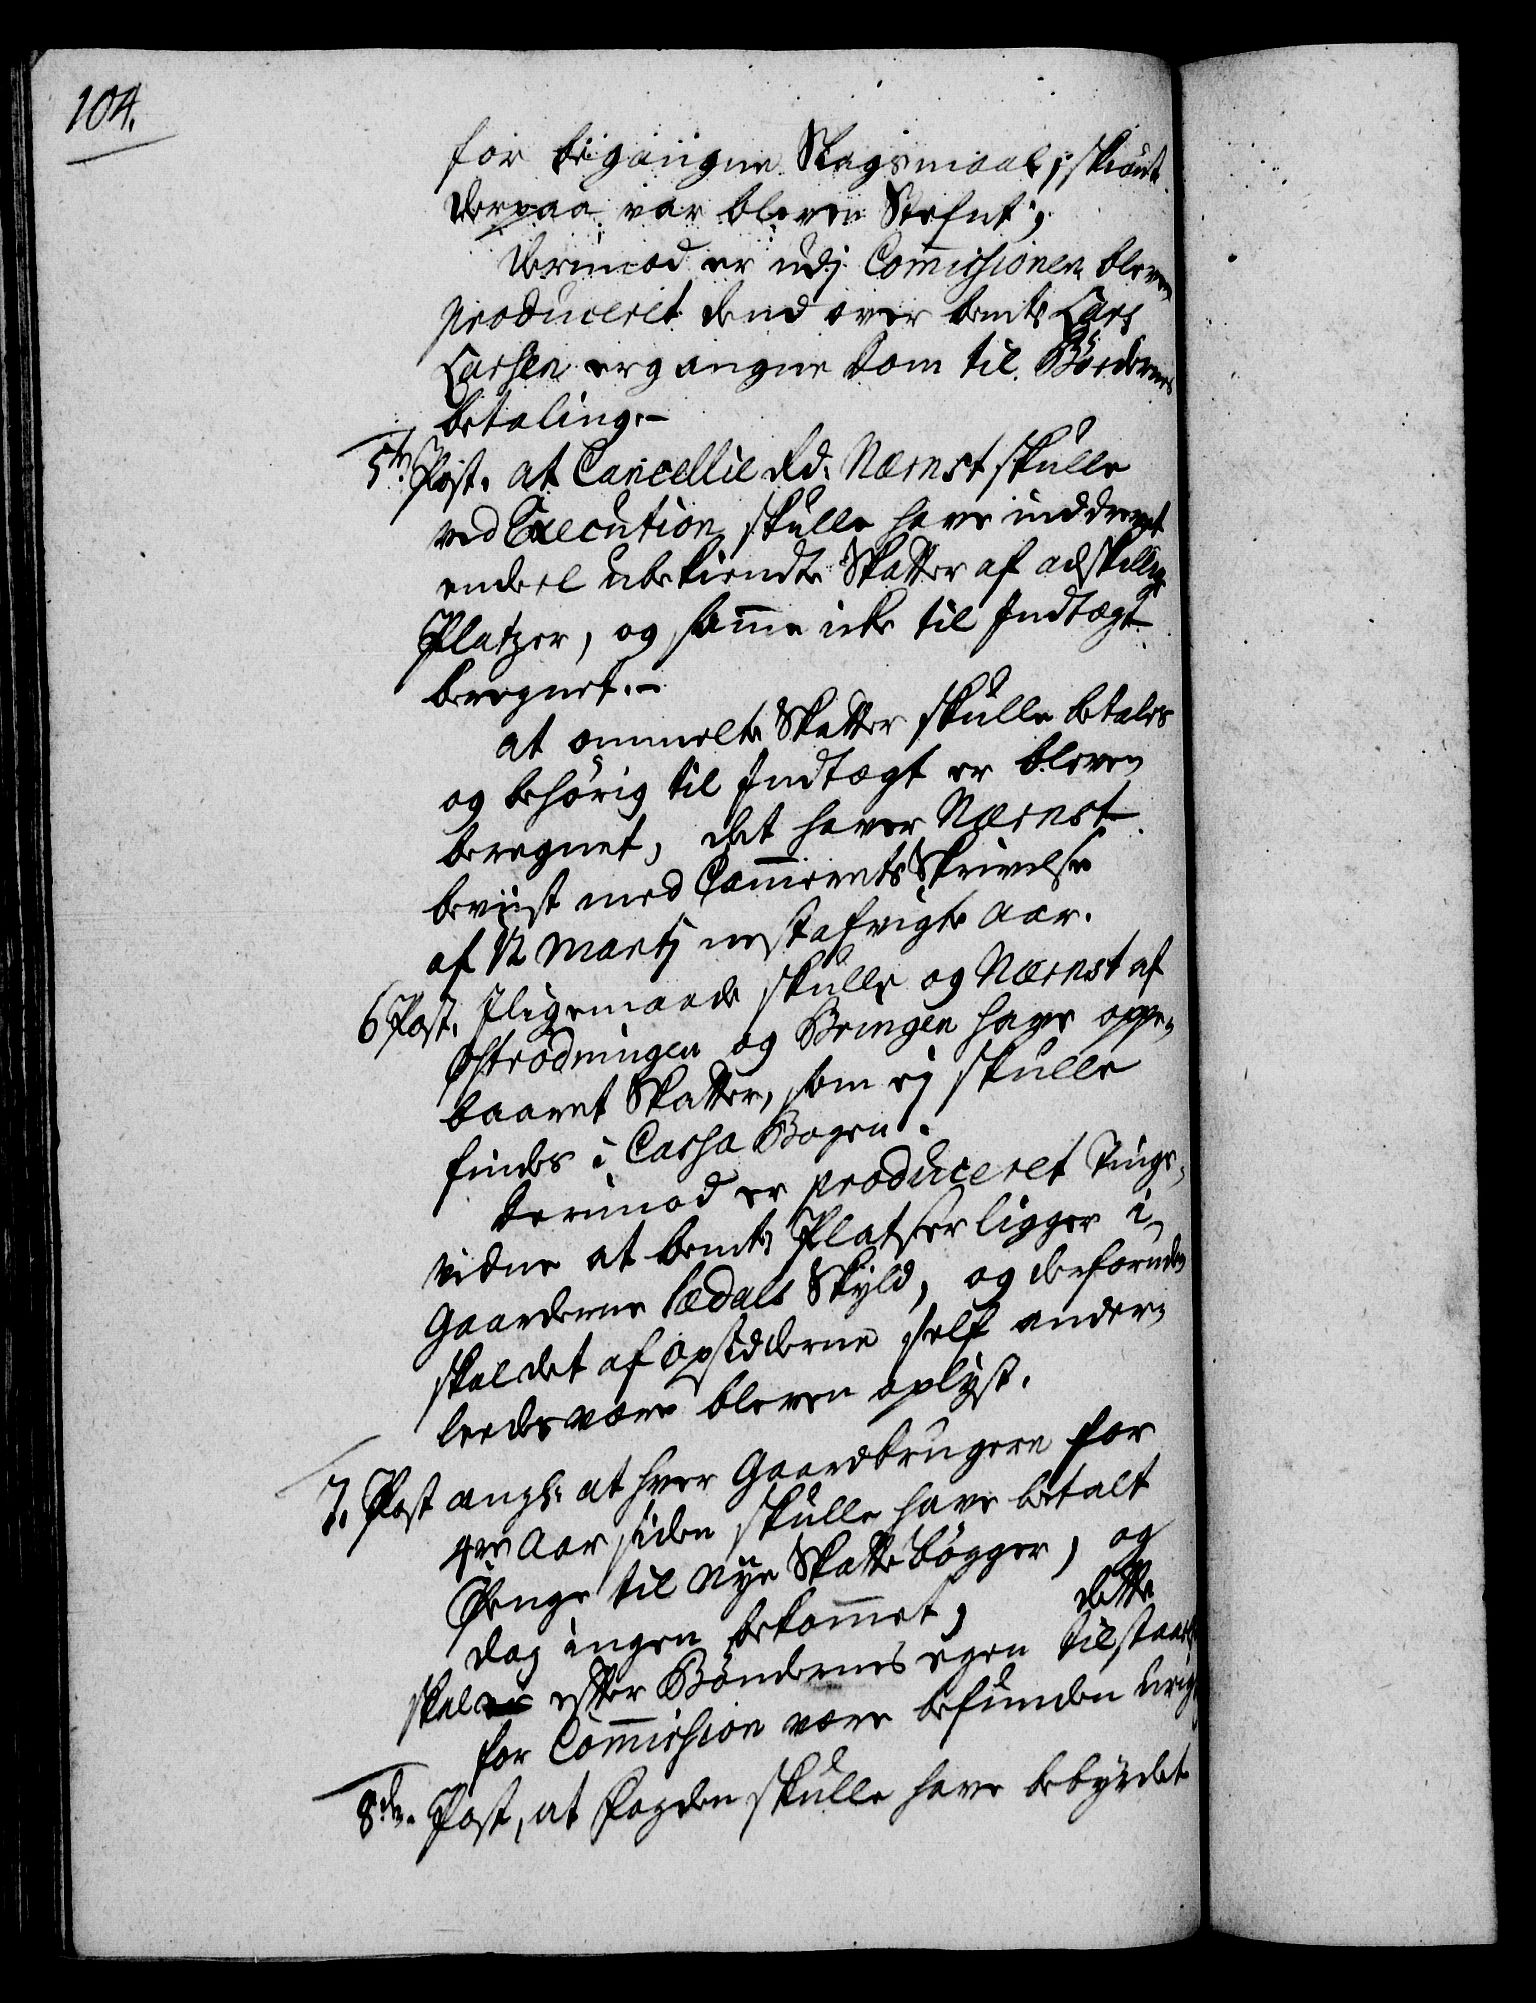 104.
for begangne Slagsmaal, skiønt
derpaa var bleven Stefnt;
Derimod er udj Commissionen bleven
produceret dend over bemte Lars
Larsen ergangne Dom til Bødernes
betaling.-
5te Post. at Cancellie Rd. Nærnst skulle
ved Execution skulle have inddrevet
endeel ubekiendte Skatter af adskillige
Platzer, og samme icke til Indtægt
beregnet.-
at ommelte Skatter skulle betales
og behörig til Indtægt er bleven
beregnet, det haver Nærnst
beviist med Cammerets Skrivelse
af 12 Martj nestafvigte Aar.
6 Post. Iligemaade skulle og Nærnst af
Østrødningen og Bringen have oppe-
baaret Skatter, som ej skulle
findes i Cassa Bogen.
Derimod er produceret Tings-
vidne at bemte Platser ligger i
Gaardernes Skyld, og desforuden
skal det af Opsidderne self ander-
leedes være bleven oplyst.
7. Post angl. at hver Gaardbrugere for
4re Aar siden skulle have betalt
Penge til Nye Skattebøgger, og
dog ingen bekommet, dette
skal efter Bøndernes egen tilstaaelse
for Commission være befunden urigt
8de. Post, at Fogden skulle have bebyrdet